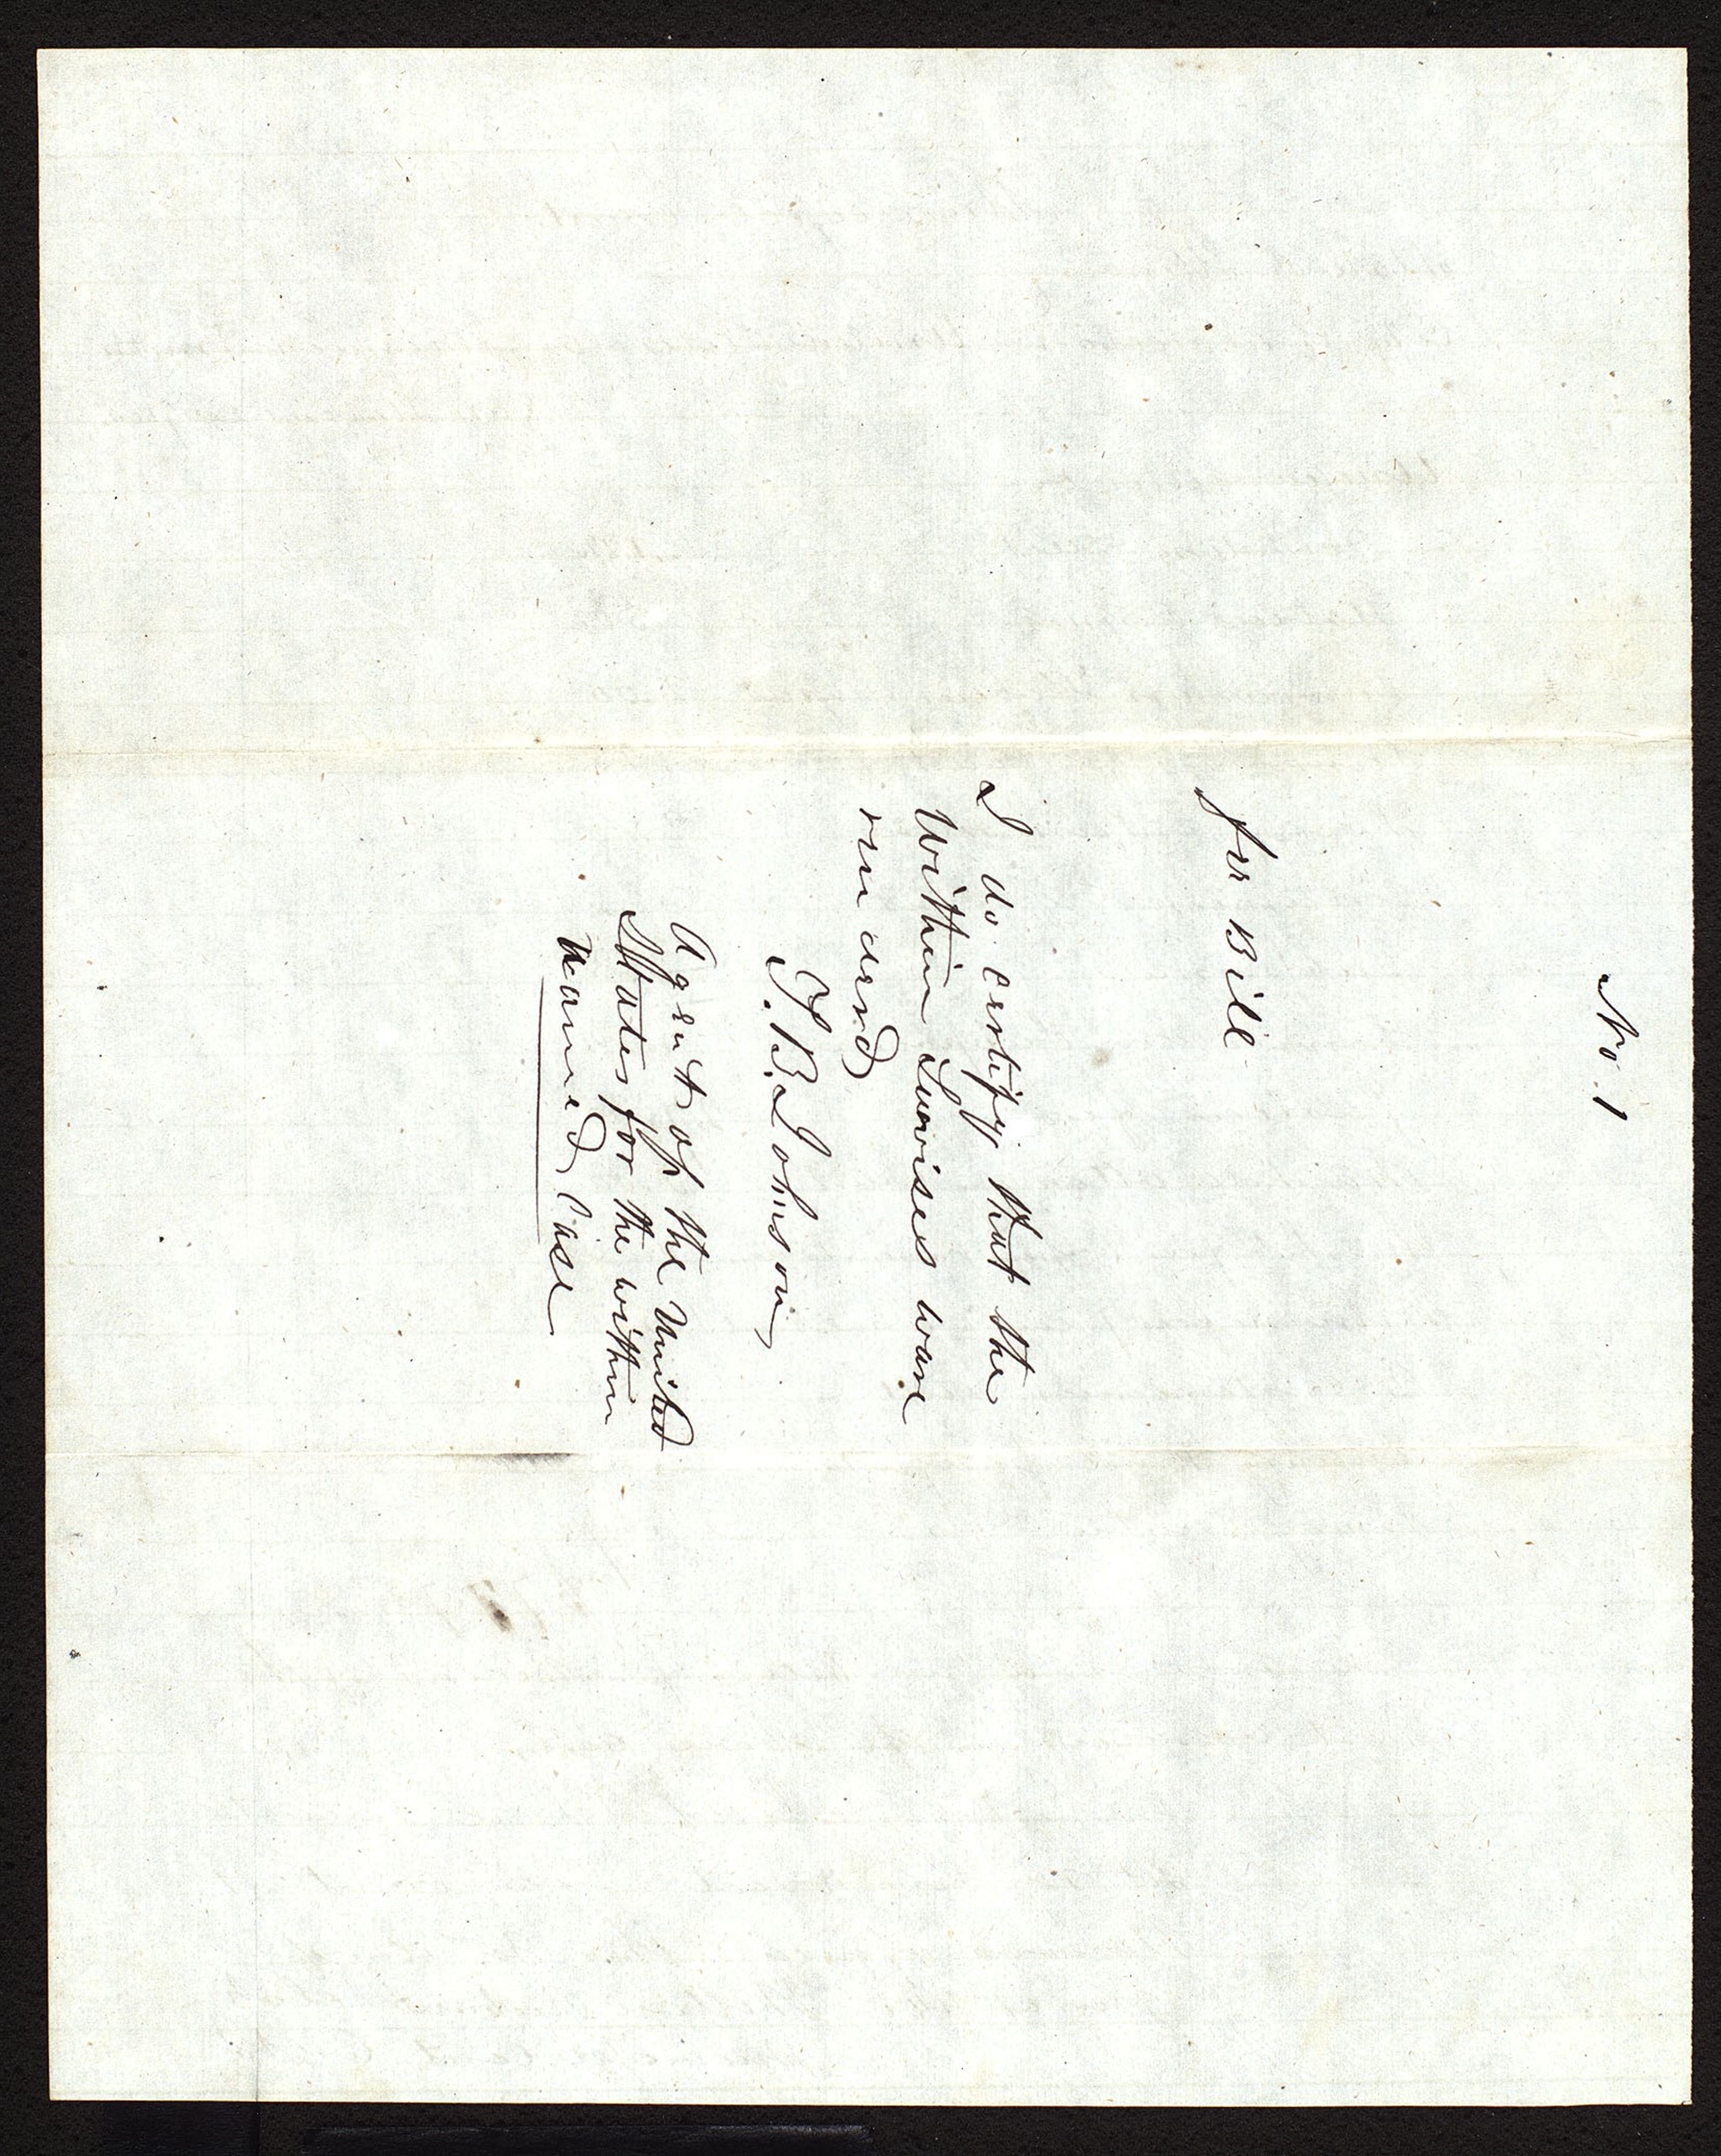 No 1
fee Bill
I do certify that the
within Survises ware
renderd
J. B. Johnson
Agent of the United
States for the within
named Case